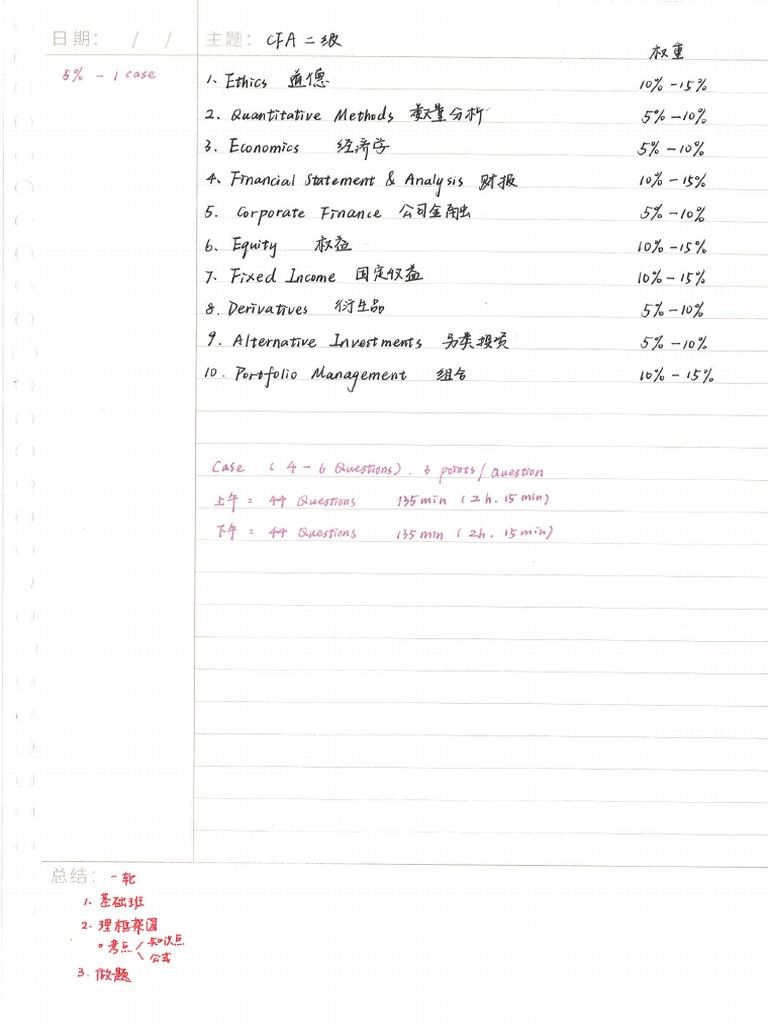 日期: / / 主题: CFA 二级
权重
5% - 1 case
1. Ethics 道德 10% - 15%
2. Quantitative Methods 数量分析 5% - 10%
3. Economics 经济学 5% - 10%
4. Financial Statement & Analysis 财报 10% - 15%
5. Corporate Finance 公司金融 5% - 10%
6. Equity 权益 10% - 15%
7. Fixed Income 固定收益 10% - 15%
8. Derivatives 衍生品 5% - 10%
9. Alternative Investments 另类投资 5% - 10%
10. Portfolio Management 组合 10% - 15%
Case (4 - 6 Questions). 3 points/Question
上午 = 44 Questions 135 min (2h. 15 min)
下午 = 44 Questions 135 min (2h. 15 min)
总结: 一轮
1. 基础班
2. 理框架图
考点 知识点
公式
3. 做题